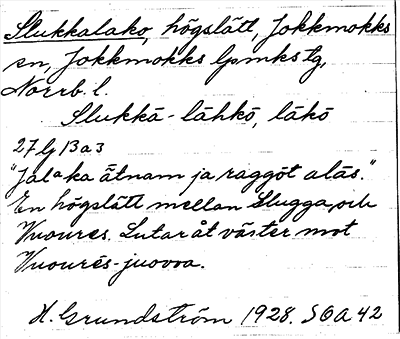 Slukkalako, högslätt, Jokkmokks
sn, Jokkmokks lpmks tg,
Norrb. l.
Slukkā-lāhkō, lākō
27 lj 13 a 3
"Jalᵃka ätnam ja raggōt alās."
En högslätt mellan Slugga och
Vuoures. Lutar åt väster mot
Vuourēs-juovva.
H. Grundström 1928. SOA 42